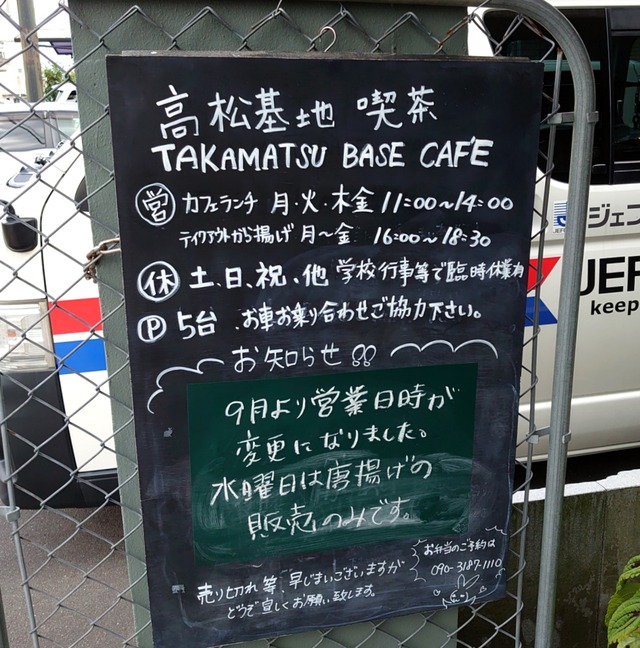 高松基地 喫茶
TAKAMATSU BASE CAFE
営 カフェランチ 月・火・木金 11:00~14:00
テイクアウトから揚げ 月~金 16:00~18:30
休 土、日、祝、他 学校行事等で臨時休業有
P 5台 お車お乗り合わせご協力下さい。
お知らせ!!
9月より営業日時が
変更になりました。
水曜日は唐揚げの
販売のみです。
お弁当のご予約は
090-3187-1110
売り切れ等、早じまいございますが
どうぞ宜しくお願い致します。
ジェフ
JEF
keep